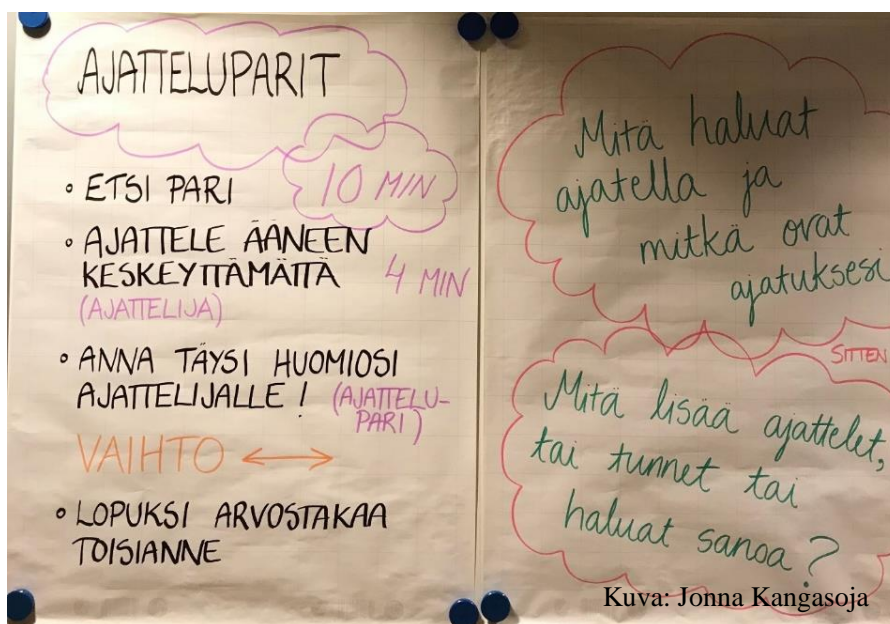 AJATTELUPARIT
10 MIN
• ETSI PARI
• AJATTELE ÄÄNEEN
KESKEYTTÄMÄTTÄ
4 MIN
(AJATTELIJA)
• ANNA TÄYSI HUOMIOSI
AJATTELIJALLE !
(AJATTELU-
PARI)
VAIHTO ↔
• LOPUKSI ARVOSTAKAA
TOISIANNE
Mitä haluat
ajatella ja
mitkä ovat
ajatuksesi
SITTEN
Mitä lisää ajattelet,
tai tunnet tai
haluat sanoa?
Kuva: Jonna Kangasoja